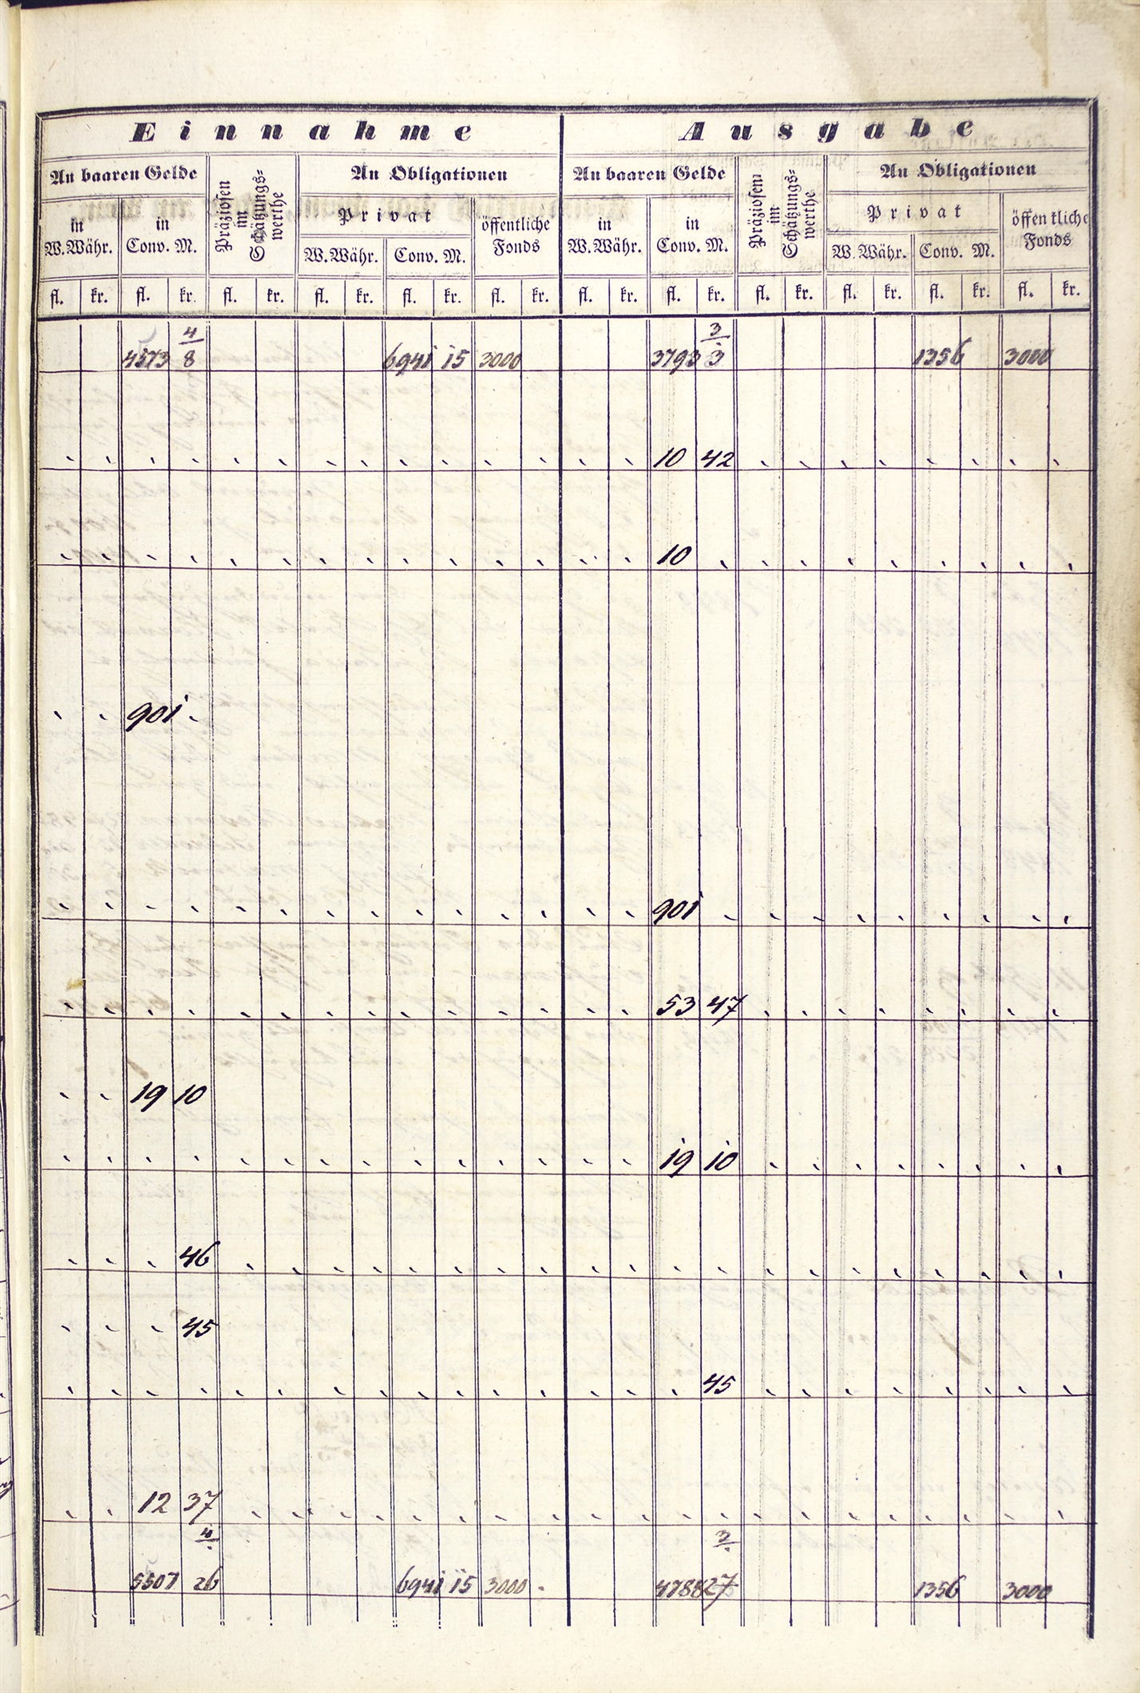 Einnahme Ausgabe
An baaren Gelde Präziosen im Schätzungs-werthe An Obligationen An baaren Gelde Präziosen im Schätzungs-werthe An Obligationen
in W.Währ. in Conv. M. Privat öffentliche Fonds in W.Währ. in Conv. M. Privat öffentliche Fonds
W.Währ. Conv. M. W.Währ. Conv. M.
fl. kr. fl. kr. fl. kr. fl. kr. fl. kr. fl. kr. fl. kr. fl. kr. fl. kr. fl. kr. fl. kr. fl. kr.
4 3
4573 8 6941 15 3000 3793 3 1356 3000
10 42
10
901
901
53 47
19 10
19 10
46
45
45
12 37
4 3
5507 26 6941 15 3000 4788 27 1356 3000